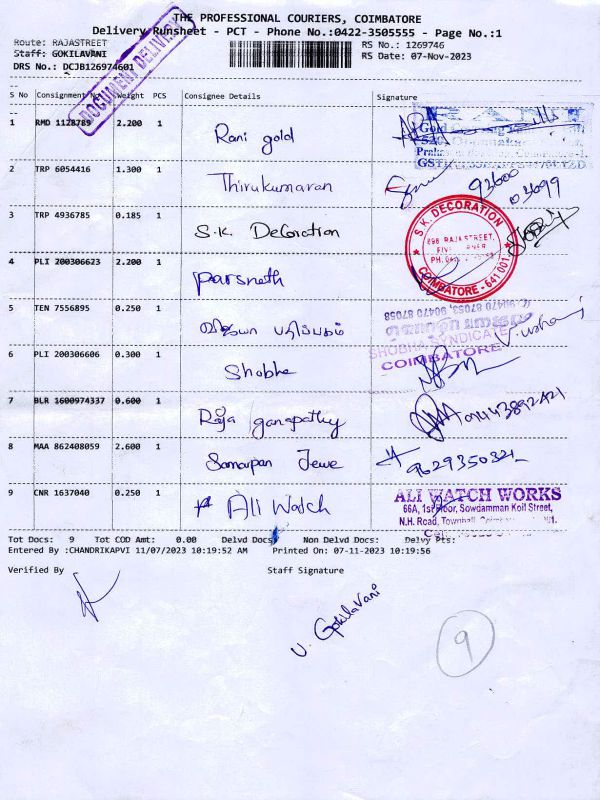 THE PROFESSIONAL COURIERS, COIMBATORE
Delivery Runsheet - PCT - Phone No.:0422-3505555 - Page No.:1
Route: RAJASTREET RS No.: 1269746
Staff: GOKILAVANI RS Date: 07-Nov-2023
DRS No.: DCJB126974601
DOCUMENT DELIVERY
S No Consignment No Weight PCS Consignee Details Signature
1 RMD 1128789 2.200 1 Rani gold
2 TRP 6054416 1.300 1 Thirukumaran 93600
03699
3 TRP 4936785 0.185 1 S.K. Decoration
S.K. DECORATION
COIMBATORE - 641 001
4 PLI 200306623 2.200 1 parsneth
5 TEN 7556895 0.250 1 விஜயா பதிப்பகம்
90470 87053, 90470 87058
V. ushani
6 PLI 200306606 0.300 1 Shobha
SHOBHA SYNDICATE
COIMBATORE
7 BLR 1600974337 0.600 1 Raja ganapathy
8 MAA 862408059 2.600 1 Samarpan Jewe
9 CNR 1637040 0.250 1 Ali Watch
ALI WATCH WORKS
66A, 1st Floor, Sowdamman Koil Street,
N.H. Road, Townhall,
Tot Docs: 9 Tot COD Amt: 0.00 Delvd Docs: Non Delvd Docs: Delvy Pts:
Entered By :CHANDRIKAPVI 11/07/2023 10:19:52 AM Printed On: 07-11-2023 10:19:56
Verified By Staff Signature
V. Gokilavani
9